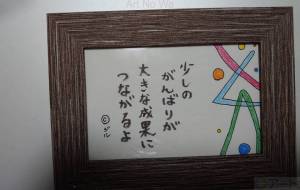 少しの
がんばりが
大きな成果に
つながるよ
©ジル